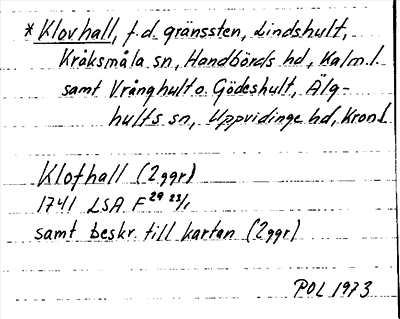 *Klovhall, f.d. gränssten, Lindshult,
Kråksmåla sn, Handbörds hd, Kalm.l.
samt Vrånghult o. Gödeshult, Älg-
hults sn, Uppvidinge hd, Kron.l.
Klofhall (2 ggr)
1741 LSA F 29 23/1
samt beskr. till kartan (2 ggr)
POL 1973